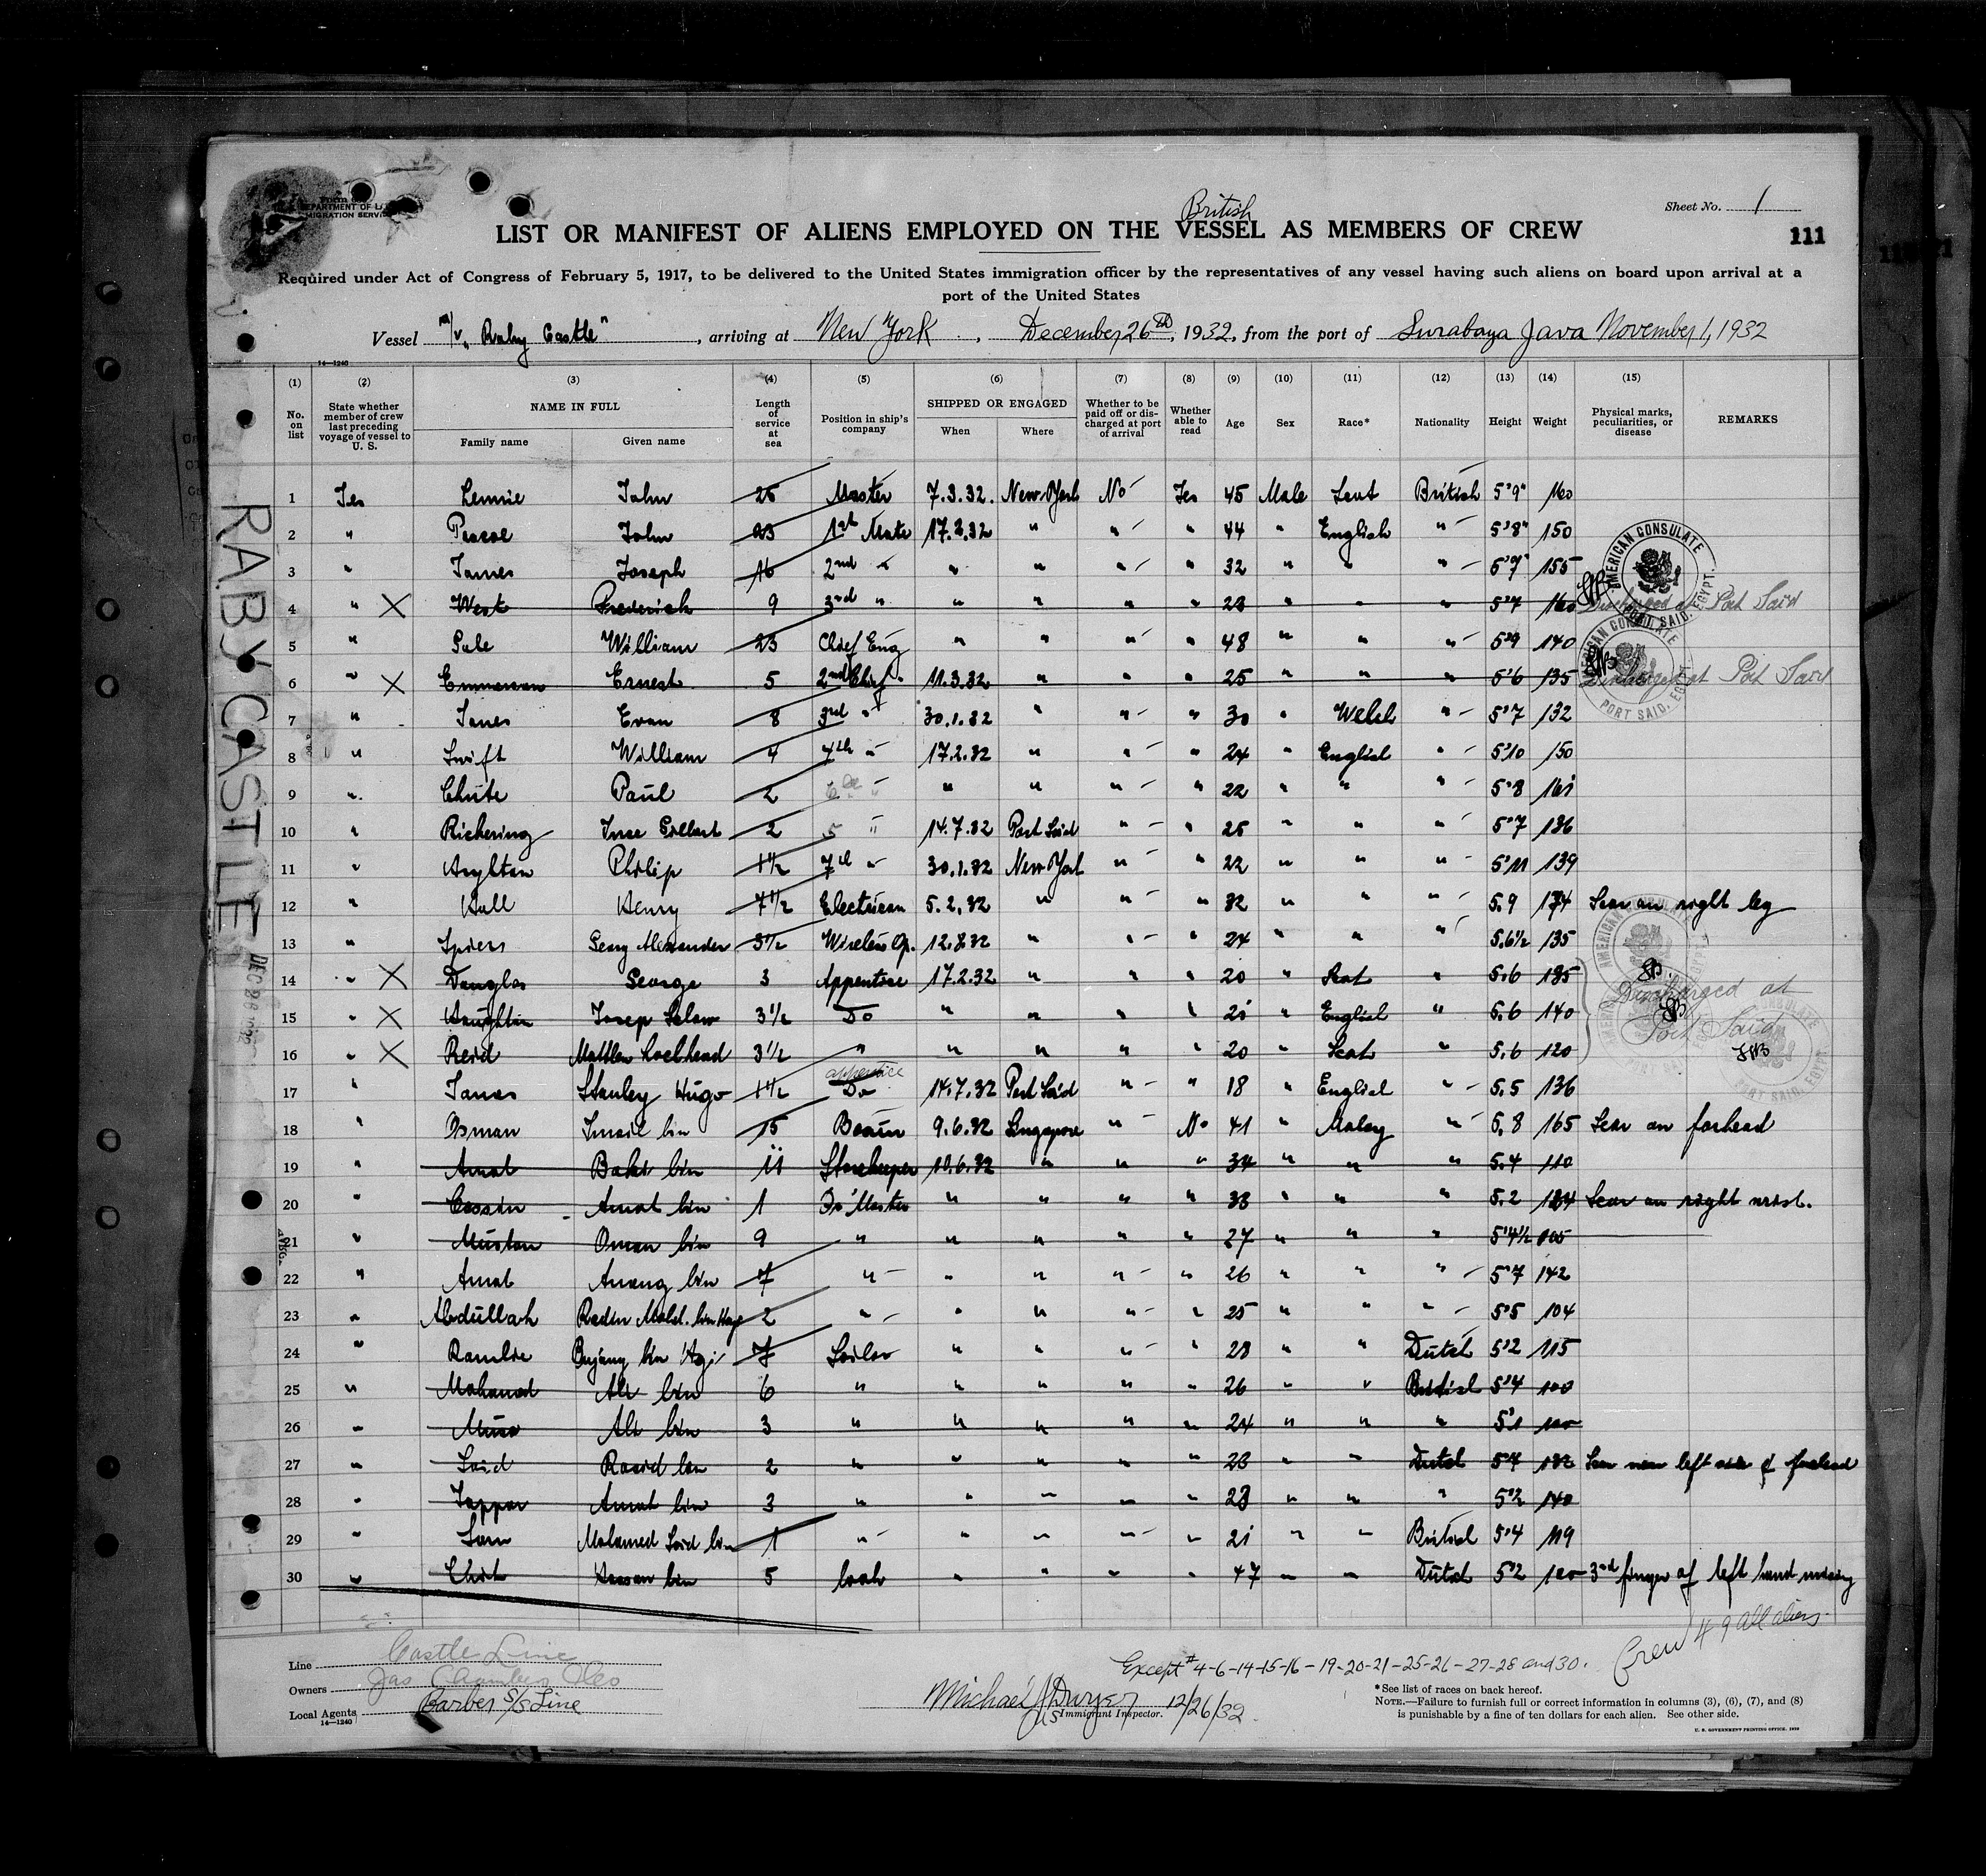 British
Sheet No. 1
LIST OR MANIFEST OF ALIENS EMPLOYED ON THE VESSEL AS MEMBERS OF CREW
111
Required under Act of Congress of February 5, 1917, to be delivered to the United States immigration officer by the representatives of any vessel having such aliens on board upon arrival at a
port of the United States
Vessel m/v "Raby Castle", arriving at New York, December 26th, 1932, from the port of Surabaya Java November 1, 1932
14-1240
(1) (2) (3) (4) (5) (6) (7) (8) (9) (10) (11) (12) (13) (14) (15)
No. on list State whether member of crew last preceding voyage of vessel to U. S. NAME IN FULL Family name Given name Length of service at sea Position in ship's company SHIPPED OR ENGAGED When Where Whether to be paid off or discharged at port of arrival Whether able to read Age Sex Race* Nationality Height Weight Physical marks, peculiarities, or disease REMARKS
RABY CASTLE
1 Yes Lennie John 26 Master 7.3.32. New York No Yes 45 Male Scot British 5'9" 160
2 " Pascoe John 23 1st Mate 17.2.32 " " " 44 " English " 5'8" 150
3 " James Joseph 16 2nd " " " " " 32 " " " 5'7" 155
4 " X West Frederick 9 3rd " " " " " 28 " " " 5'7 160 Discharged at Port Said
5 " William 23 Chief Eng " " " " 48 " " " 5'9 140
6 " X Emmerson Ernest 5 2nd " 11.3.32 " " " 25 " " " 5'6 135 Discharged at Port Said
7 " Jones Evan 8 3rd " 30.1.32 " " " 30 " Welsh " 5'7 132
8 " Swift William 4 4th " 17.2.32 " " " 24 " English " 5'10 150
9 " Chute Paul 2 " " " " " 22 " " " 5'8 161
10 " Pickering 2 5 " 14.7.32 Port Said " " 25 " " " 5'7 136
11 " Philip 1 1/2 7th " 30.1.32 New York " " 22 " " " 5'11 139
12 " Hall Henry 7 1/2 Electrican 5.2.32 " " " 32 " " " 5.9 174 Scar on right leg
13 " Spiers Georg Alexander 3 1/2 Wireless Op. 12.8.32 " " " 24 " " " 5.6 1/2 135
14 " X Douglas George 3 Apprentice 17.2.32 " " " 20 " Scot " 5.6 135 Discharged at
15 " X Haughton Josep 3 1/2 Do " " " " 21 " English " 5.6 140 Port Said
16 " X Reid Matthew Lochhead 3 1/2 " " " " " 20 " Scot " 5.6 120
apprentice
17 " James Stanley Hugo 1 1/2 Do 14.7.32 Port Said " " 18 " English " 5.5 136
18 " Osman Ismail bin 15 Bosun 9.6.32 Singapore " No 41 " Malay " 5.8 165 Scar on forhead
19 " Amat Bakri bin 11 Storekeeper 10.6.32 " " " 34 " " " 5.4 110
20 " Cassim Amat bin 1 Qr Master " " " " 38 " " " 5.2 134 Scar on right wrist.
21 " Mustan Oman bin 9 " " " " " 27 " " " 5'4 1/2 105
22 " Amat Anang bin 7 " " " " " 26 " " " 5'7 142
23 " Abdullah Raden Mohd. bin Haji 2 " " " " " 25 " " " 5'5 104
24 " Ramlie Bujang bin Haji 7 Sailor " " " " 28 " " Dutch 5'2 115
25 " Mohamed Ali bin 6 " " " " " 26 " " British 5'4 100
26 " Musa Ali bin 3 " " " " " 24 " " " 5'1 100
27 " Said Rasid bin 2 " " " " " 23 " " Dutch 5'4 132 Scar near left side of forehead
28 " Amat bin 3 " " " " " 23 " " " 5'2 140
29 " Mohamed Said bin 1 " " " " " 21 " " British 5'4 119
30 " Hassan bin 5 Cook " " " " 47 " " Dutch 5'2 100 3rd finger of left hand missing
AMERICAN CONSULATE
PORT SAID, EGYPT.
Crew 49 all aliens.
Except # 4-6-14-15-16-19-20-21-25-26-27-28 and 30.
Line Castle Line
Owners Jas Chambers & Co
Local Agents Barber S/S Line
14-1240
Michael J Dwyer 12/26/32
Immigrant Inspector.
*See list of races on back hereof.
NOTE.—Failure to furnish full or correct information in columns (3), (6), (7), and (8)
is punishable by a fine of ten dollars for each alien. See other side.
U. S. GOVERNMENT PRINTING OFFICE.